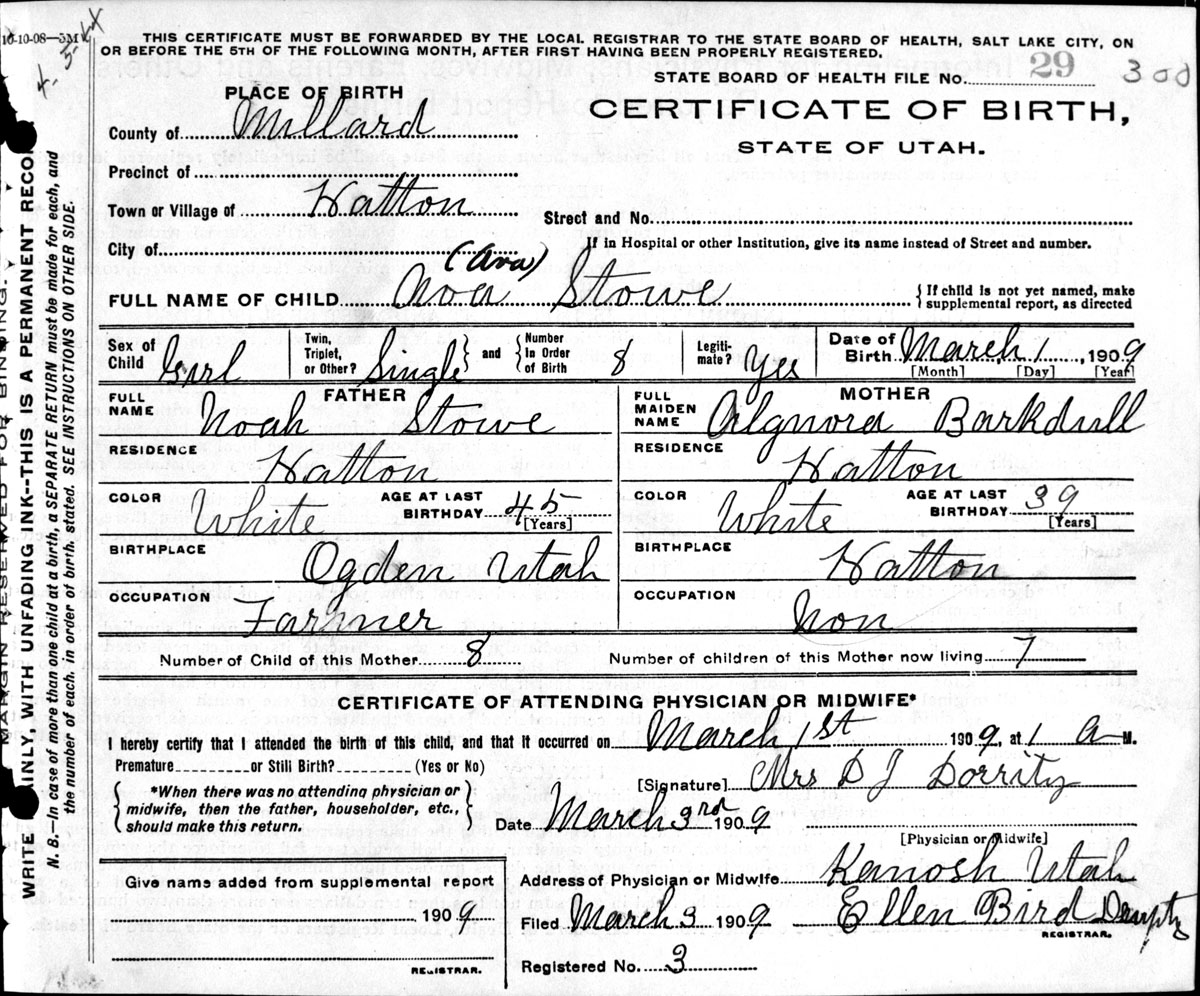 10-10-08—
THIS CERTIFICATE MUST BE FORWARDED BY THE LOCAL REGISTRAR TO THE STATE BOARD OF HEALTH, SALT LAKE CITY, ON
OR BEFORE THE 5TH OF THE FOLLOWING MONTH, AFTER FIRST HAVING BEEN PROPERLY REGISTERED.
STATE BOARD OF HEALTH FILE No. 29 300
PLACE OF BIRTH
CERTIFICATE OF BIRTH,
STATE OF UTAH.
County of Millard
Precinct of
Town or Village of Hatton
Street and No.
City of
If in Hospital or other Institution, give its name instead of Street and number.
(Ava)
FULL NAME OF CHILD Ava Stowe
{ If child is not yet named, make
supplemental report, as directed
Sex of Child Girl
Twin, Triplet, or Other? Single } and { Number In Order of Birth 8
Legiti-mate? Yes
Date of Birth March 1, 1909
[Month] [Day] [Year]
FATHER
FULL NAME Noah Stowe
RESIDENCE Hatton
COLOR White AGE AT LAST BIRTHDAY 45 [Years]
BIRTHPLACE Ogden Utah
OCCUPATION Farmer
MOTHER
FULL MAIDEN NAME Algnora Barkdull
RESIDENCE Hatton
COLOR White AGE AT LAST BIRTHDAY 39 [Years]
BIRTHPLACE Hatton
OCCUPATION Non
Number of Child of this Mother 8 Number of children of this Mother now living 7
CERTIFICATE OF ATTENDING PHYSICIAN OR MIDWIFE*
I hereby certify that I attended the birth of this child, and that it occurred on March 1st 1909, at 1 A M.
Premature or Still Birth? (Yes or No)
{ *When there was no attending physician or
midwife, then the father, householder, etc.,
should make this return. }
[Signature] Mrs D J Dorrity
Date March 3rd 1909
[Physician or Midwife]
Address of Physician or Midwife Kanosh Utah
Filed March 3 1909 Ellen Bird Deupty
REGISTRAR.
Registered No. 3
Give name added from supplemental report
1909
REGISTRAR.
MARGIN RESERVED FOR BINDING.
WRITE PLAINLY, WITH UNFADING INK--THIS IS A PERMANENT RECORD
N. B.—In case of more than one child at a birth, a SEPARATE RETURN must be made for each, and
the number of each, in order of birth, stated. SEE INSTRUCTIONS ON OTHER SIDE.